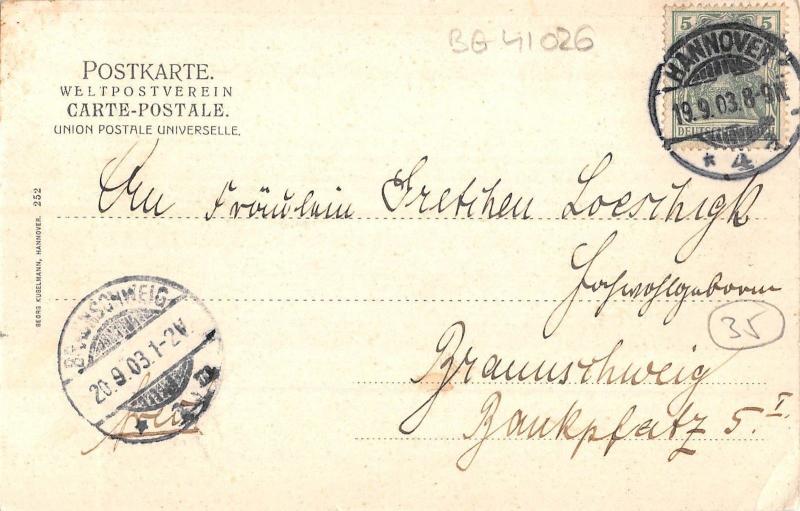 BG 41026
5 5
HANNOVER 1
19.9.03. 8-9N
* 4 *
POSTKARTE.
WELTPOSTVEREIN
CARTE-POSTALE.
UNION POSTALE UNIVERSELLE.
An Fräulein Gretchen Loeschigk
Hochwohlgeboren
35
Braunschweig
Bankpfatz 5. I.
BRAUNSCHWEIG
20.9.03. 1-2N
frei
GEORG KUGELMANN, HANNOVER. 252